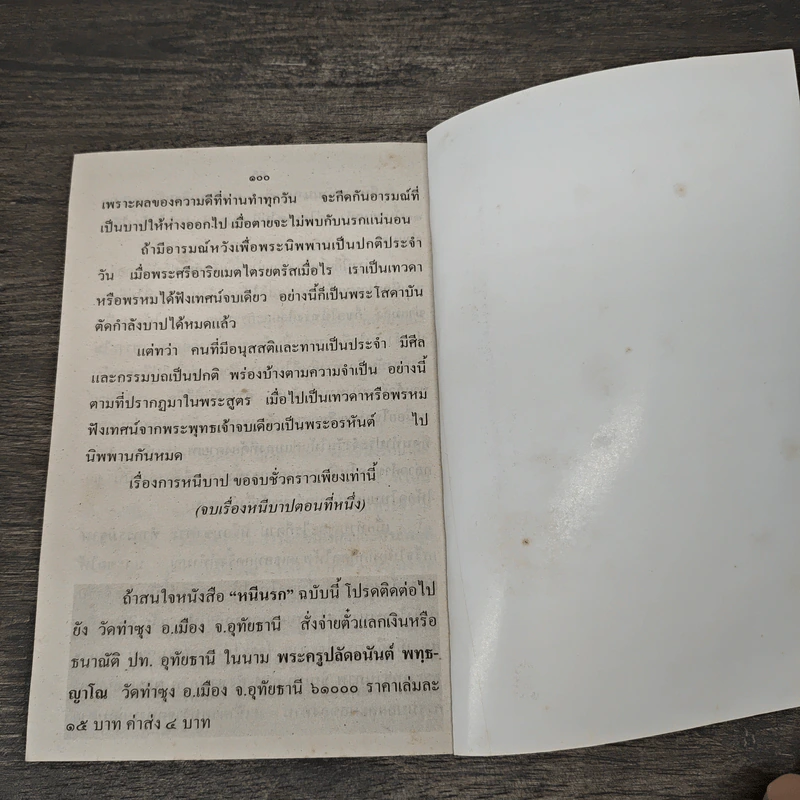 ๑๐๐
เพราะผลของความดีที่ท่านทำทุกวัน จะกีดกันอารมณ์ที่
เป็นบาปให้ห่างออกไป เมื่อตายจะไม่พบกับนรกแน่นอน
ถ้ามีอารมณ์หวังเพื่อพระนิพพานเป็นปกติประจำ
วัน เมื่อพระศรีอาริยเมตไตรยตรัสเมื่อไร เราเป็นเทวดา
หรือพรหมได้ฟังเทศน์จบเดียว อย่างนี้ก็เป็นพระโสดาบัน
ตัดกำลังบาปได้หมดแล้ว
แต่ทว่า คนที่มีอนุสสติและทานเป็นประจำ มีศีล
และกรรมบถเป็นปกติ พร่องบ้างตามความจำเป็น อย่างนี้
ตามที่ปรากฏมาในพระสูตร เมื่อไปเป็นเทวดาหรือพรหม
ฟังเทศน์จากพระพุทธเจ้าจบเดียวเป็นพระอรหันต์ ไป
นิพพานกันหมด
เรื่องการหนีบาป ขอจบชั่วคราวเพียงเท่านี้
(จบเรื่องหนีบาปตอนที่หนึ่ง)
ถ้าสนใจหนังสือ “หนีนรก” ฉบับนี้ โปรดติดต่อไป
ยัง วัดท่าซุง อ.เมือง จ.อุทัยธานี สั่งจ่ายตั๋วแลกเงินหรือ
ธนาณัติ ปท. อุทัยธานี ในนาม พระครูปลัดอนันต์ พทฺธ-
ญาโณ วัดท่าซุง อ.เมือง จ.อุทัยธานี ๖๑๐๐๐ ราคาเล่มละ
๑๕ บาท ค่าส่ง ๔ บาท